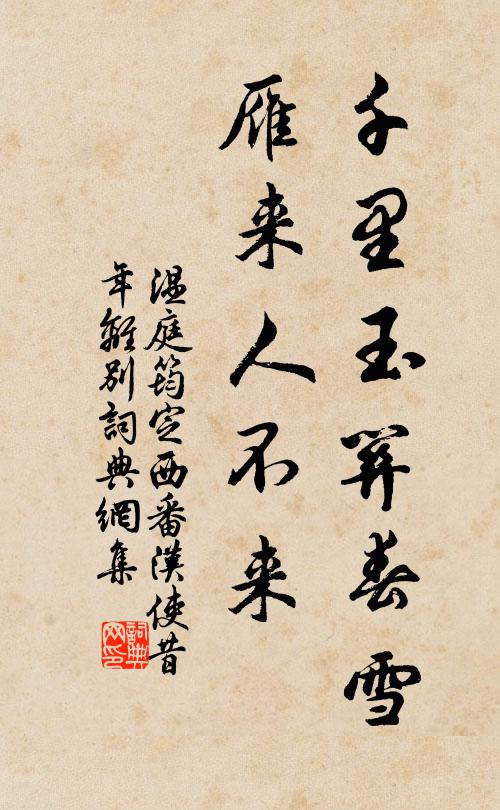 千里玉關春雪
雁来人不来
温庭筠定西番漢使昔
年離別詞典網集
詞典网印